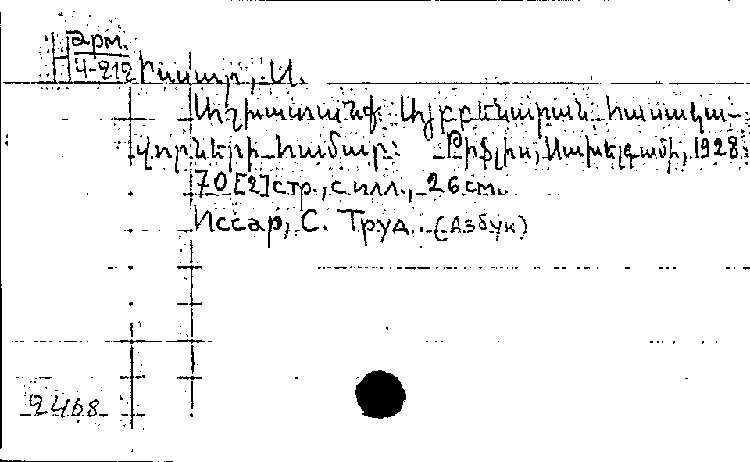 Арм.
4-212
Իսսար, Ս.
Աշխատանք. Այբբենարան հասակա-
վորների համար: Թիֆլիս, 1928.
70 [2] стр., с илл., 26 см.
Иссар, С. Труд. (Азбук)
2468